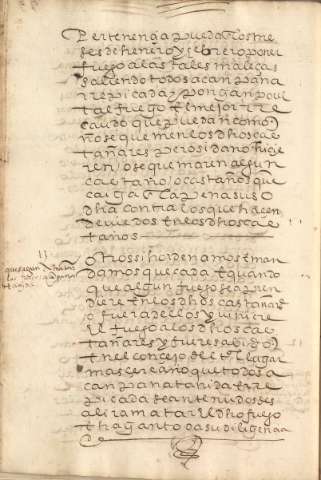 Pertenençia puedan los me
ses de henero y febrero poner
fuego a las tales maleças
saliendo todos a canpana
rrepicada y pongan por
tal fuego el mejor rre
caudo que puedan como
no se quemen los dhos ca
tañares pero si daño hicie
ren o se quemaren algun
castaño o castaños que
caiga en la pena suso
dha contra los que hacen
en los dhos cas
tanos
que hagan
otrossi hordenamos e man
damos que cada e quando
que algun fuego se apren
diere en los dhos castañares
o fuera dellos y viniere
el fuego a los dhos cas
tañares y fuere sabido
en el concejo del lugar
mas cercano que todos a
canpana tañida e rre
picada sean tenudos de
salir a matar el dho fuego
e hagan toda su diligençia